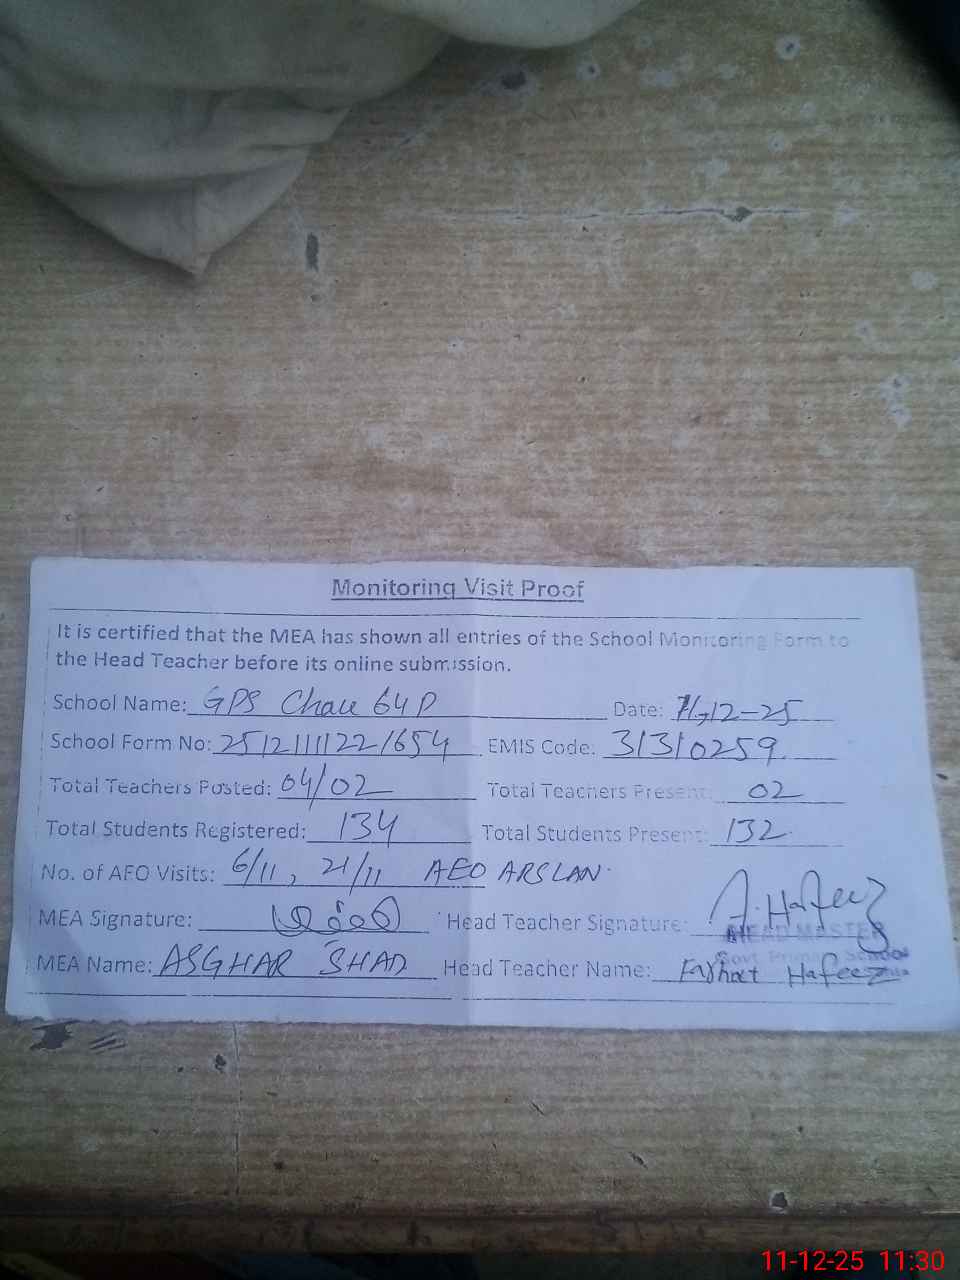 Monitoring Visit Proof
It is certified that the MEA has shown all entries of the School Monitoring Form to
the Head Teacher before its online submission.
School Name: GPS Chak 64P Date: 11-12-25
School Form No: EMIS Code: 31310259
Total Teachers Posted: 04/02 Total Teachers Present: 02
Total Students Registered: 134 Total Students Present: 132
No. of AEO Visits: 6/11, 21/11 AEO ARSLAN
MEA Signature: Head Teacher Signature: A.Hafeez
HEAD MASTER
Govt Primary School
MEA Name: ASGHAR SHAD Head Teacher Name: Farhat Hafeez
11-12-25 11:30